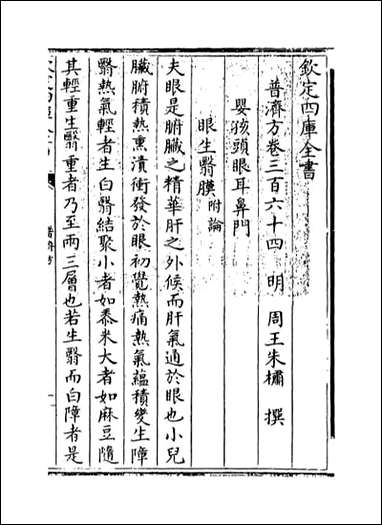 欽定四庫全書
普濟方卷三百六十四 明 周王朱橚 撰
嬰孩頭眼耳鼻門
眼生翳膜附論
夫眼是腑臟之精華肝之外候而肝氣通於眼也小兒
臟腑積熱熏漬衝發於眼初覺熱痛熱氣蘊積變生障
翳熱氣輕者生白翳結聚小者如黍米大者如麻豆隨
其輕重生翳重者乃至兩三層也若生翳而白障者是